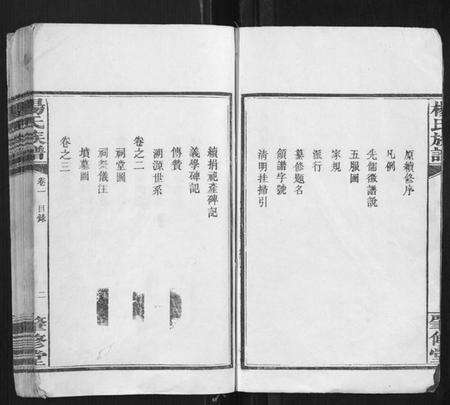 楊氏族譜
原續修序
凡例
先儒譜說
五服圖
家規
派行
纂修題名
領譜字號
清明挂掃引
肇修堂
續捐祀產碑記
義學碑記
傳贊
溯源世系
卷之二
祠堂圖
祠祭儀注
墳墓圖
卷之三
楊氏族譜
卷一
目錄
二
肇修堂